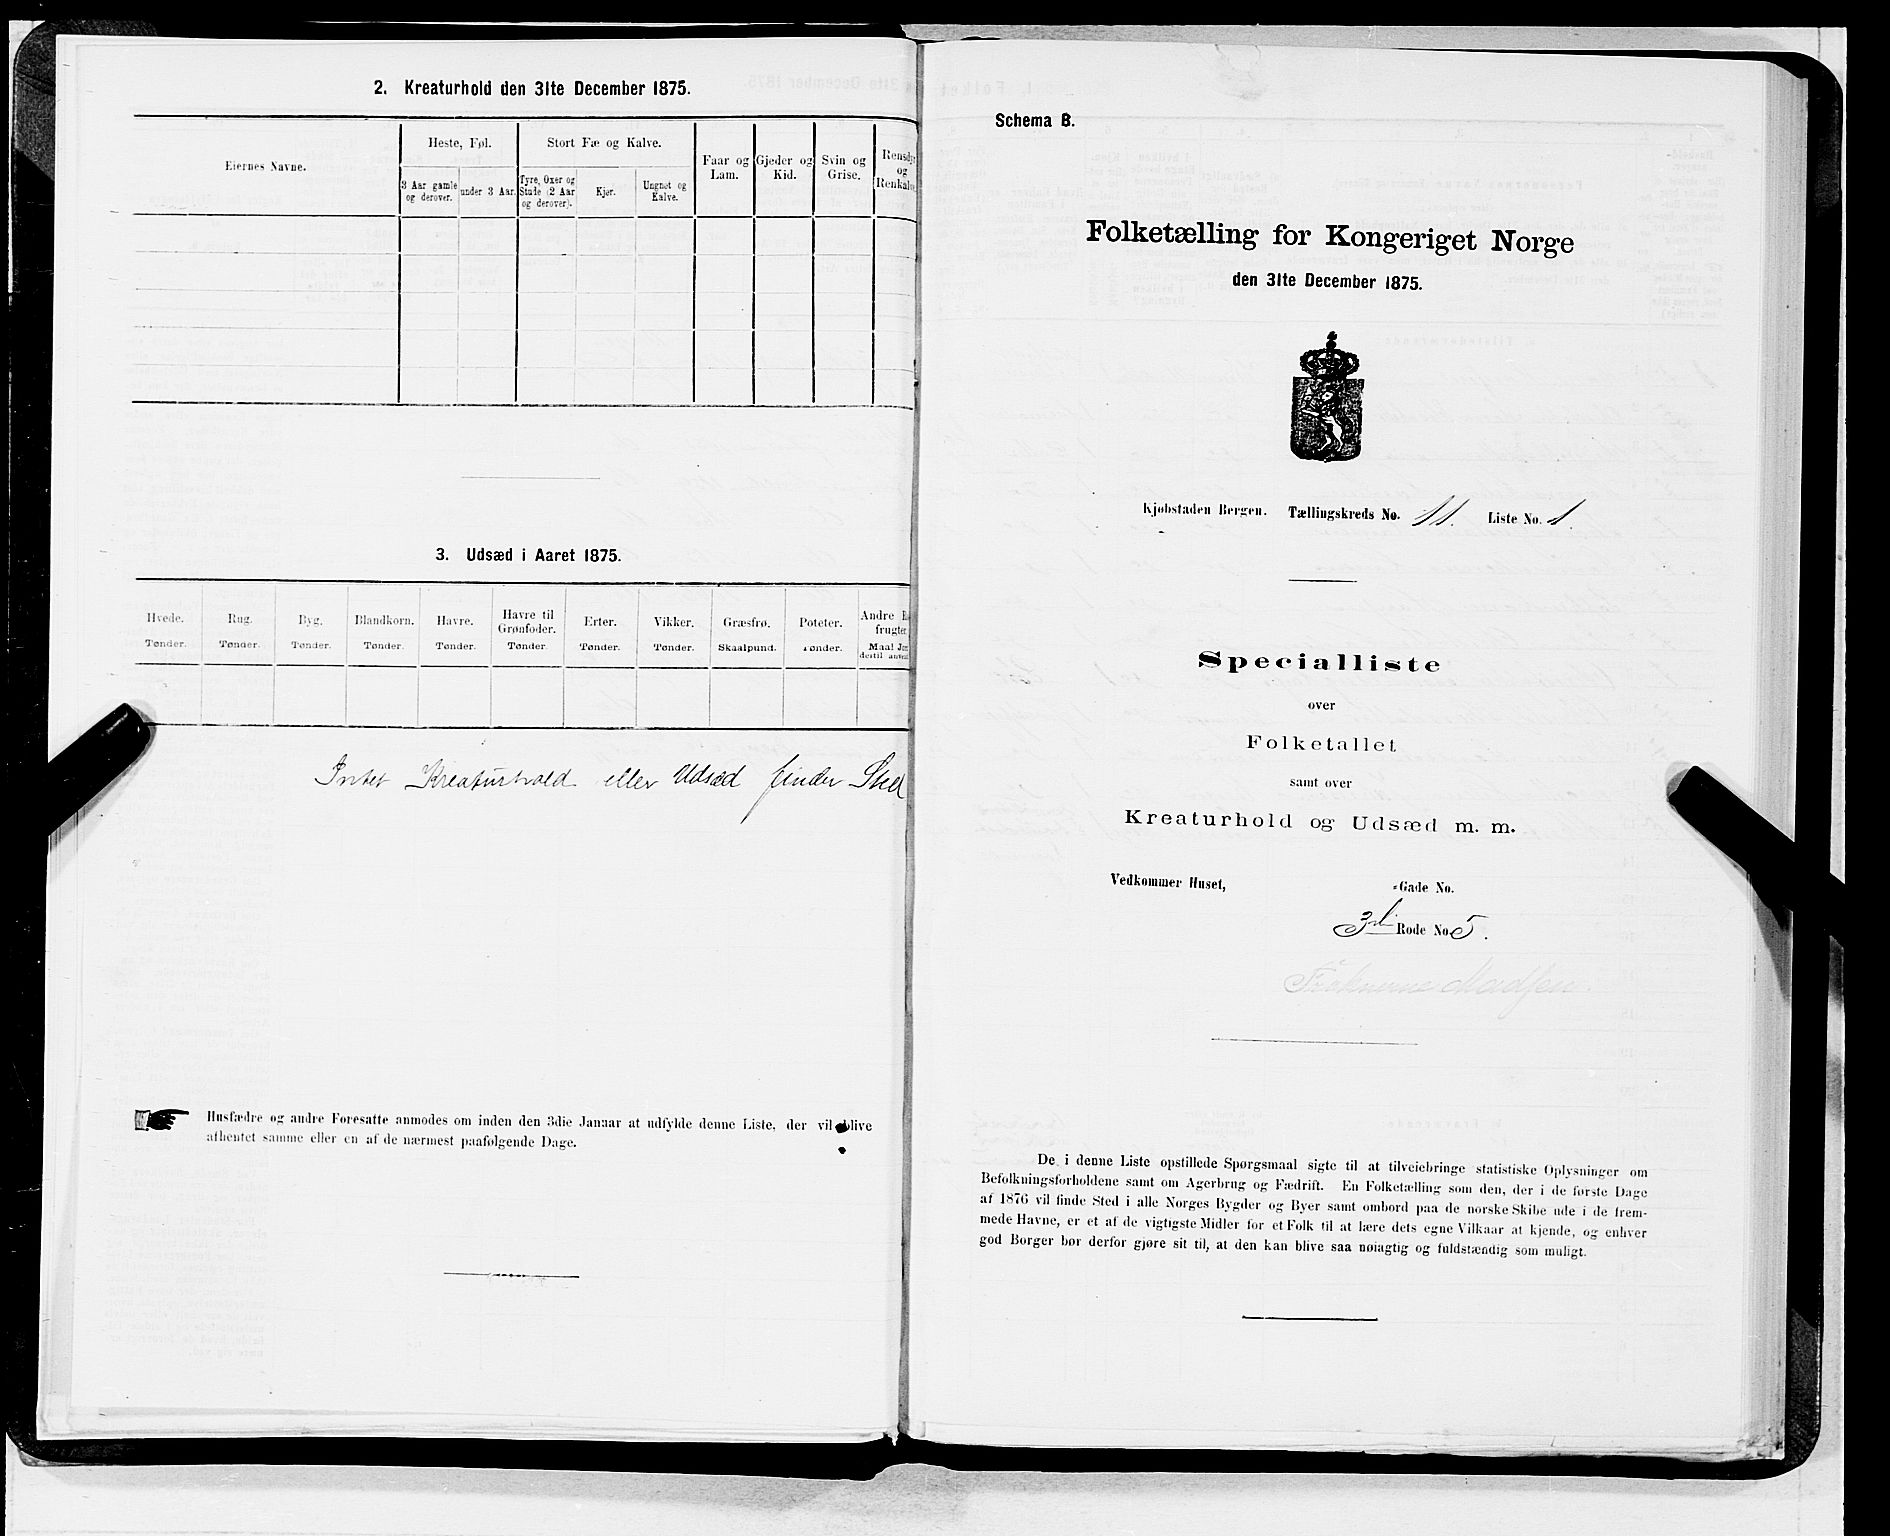 2. Kreaturhold den 31te December 1875.
Eiernes Navne.
Heste, Føl.
Stort Fæ og Kalve.
Faar og Lam.
Gjeder og Kid.
Svin og Grise.
Rensdyr og Renkalve
3 Aar gamle og derover.
under 3 Aar.
Tyre, Oxer og Stude (2 Aar og derover).
Kjør.
Ungnøt og Kalve.
3. Udsæd i Aaret 1875.
Hvede. Rug. Byg. Blandkorn. Havre. Havre til Grønfoder. Erter. Vikker. Græsfrø. Poteter. Andre
frugter.
Tønder. Tønder. Tønder. Tønder. Tønder. Tønder. Tønder. Tønder. Skaalpund. Tønder. Maal
Intet Kreaturhold eller Udsæd finder Sted
Husfædre og andre Foresatte anmodes om inden den 3die Januar at udfylde denne Liste, der vil blive
afhentet samme eller en af de nærmest paafølgende Dage.
Schema B.
Folketælling for Kongeriget Norge
den 31te December 1875.
Kjøbstaden Bergen. Tællingskreds No. 11. Liste No. 1.
Specialliste
over
Folketallet
samt over
Kreaturhold og Udsæd m. m.
Vedkommer Huset, -Gade No.
3die Rode No. 5.
Frøknerne Madsen.
De i denne Liste opstillede Spørgsmaal sigte til at tilveiebringe statistiske Oplysninger om
Befolkningsforholdene samt om Agerbrug og Fædrift. En Folketælling som den, der i de første Dage
af 1876 vil finde Sted i alle Norges Bygder og Byer samt ombord paa de norske Skibe ude i de frem-
mede Havne, er et af de vigtigste Midler for et Folk til at lære dets egne Vilkaar at kjende, og enhver
god Borger bør derfor gjøre sit til, at den kan blive saa nøiagtig og fuldstændig som muligt.